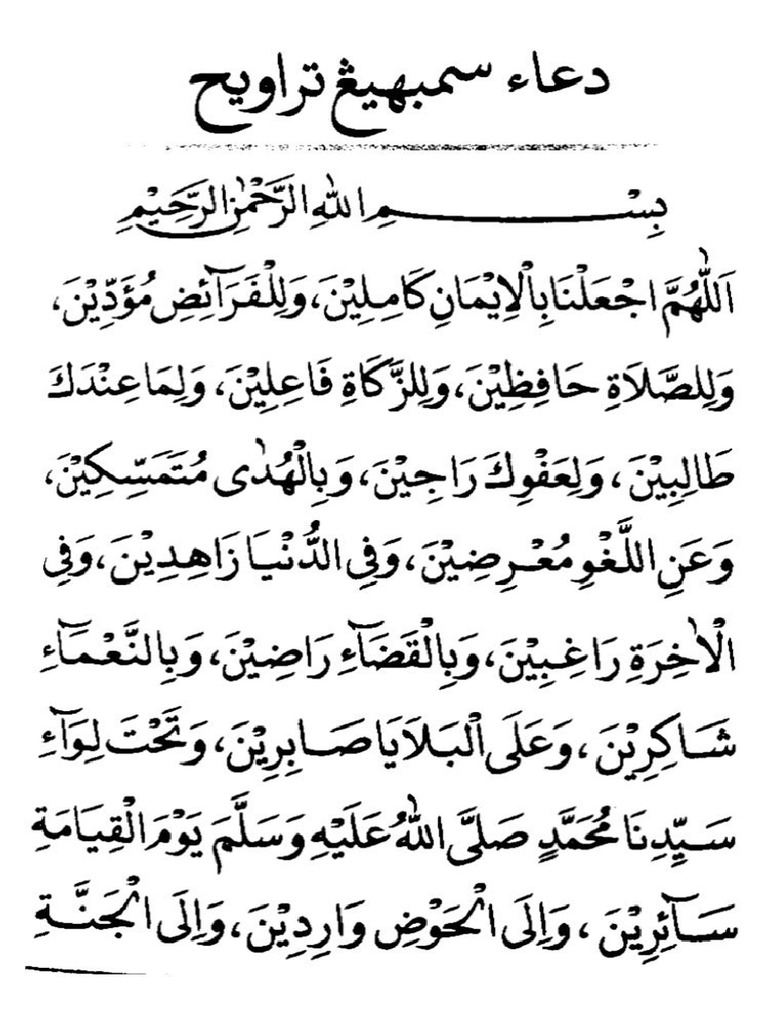 دعاء سمبهيڠ تراويح
بِسْمِ اللهِ الرَّحْمٰنِ الرَّحِيْمِ
اَللّٰهُمَّ اجْعَلْنَا بِاْلاِيْمَانِ كَامِلِيْنَ، وَلِلْفَرَآئِضِ مُؤَدِّيْنَ،
وَلِلصَّلَاةِ حَافِظِيْنَ، وَلِلزَّكَاةِ فَاعِلِيْنَ، وَلِمَا عِنْدَكَ
طَالِبِيْنَ، وَلِعَفْوِكَ رَاجِيْنَ، وَبِالْهُدٰى مُتَمَسِّكِيْنَ،
وَعَنِ اللَّغْوِ مُعْرِضِيْنَ، وَفِي الدُّنْيَا زَاهِدِيْنَ، وَفِي
اْلاٰخِرَةِ رَاغِبِيْنَ، وَبِالْقَضَآءِ رَاضِيْنَ، وَبِالنَّعْمَآءِ
شَاكِرِيْنَ، وَعَلَى الْبَلَايَا صَابِرِيْنَ، وَتَحْتَ لِوَآءِ
سَيِّدِنَا مُحَمَّدٍ صَلَّى اللهُ عَلَيْهِ وَسَلَّمَ يَوْمَ الْقِيَامَةِ
سَآئِرِيْنَ، وَاِلَى الْحَوْضِ وَارِدِيْنَ، وَاِلَى الْجَنَّةِ